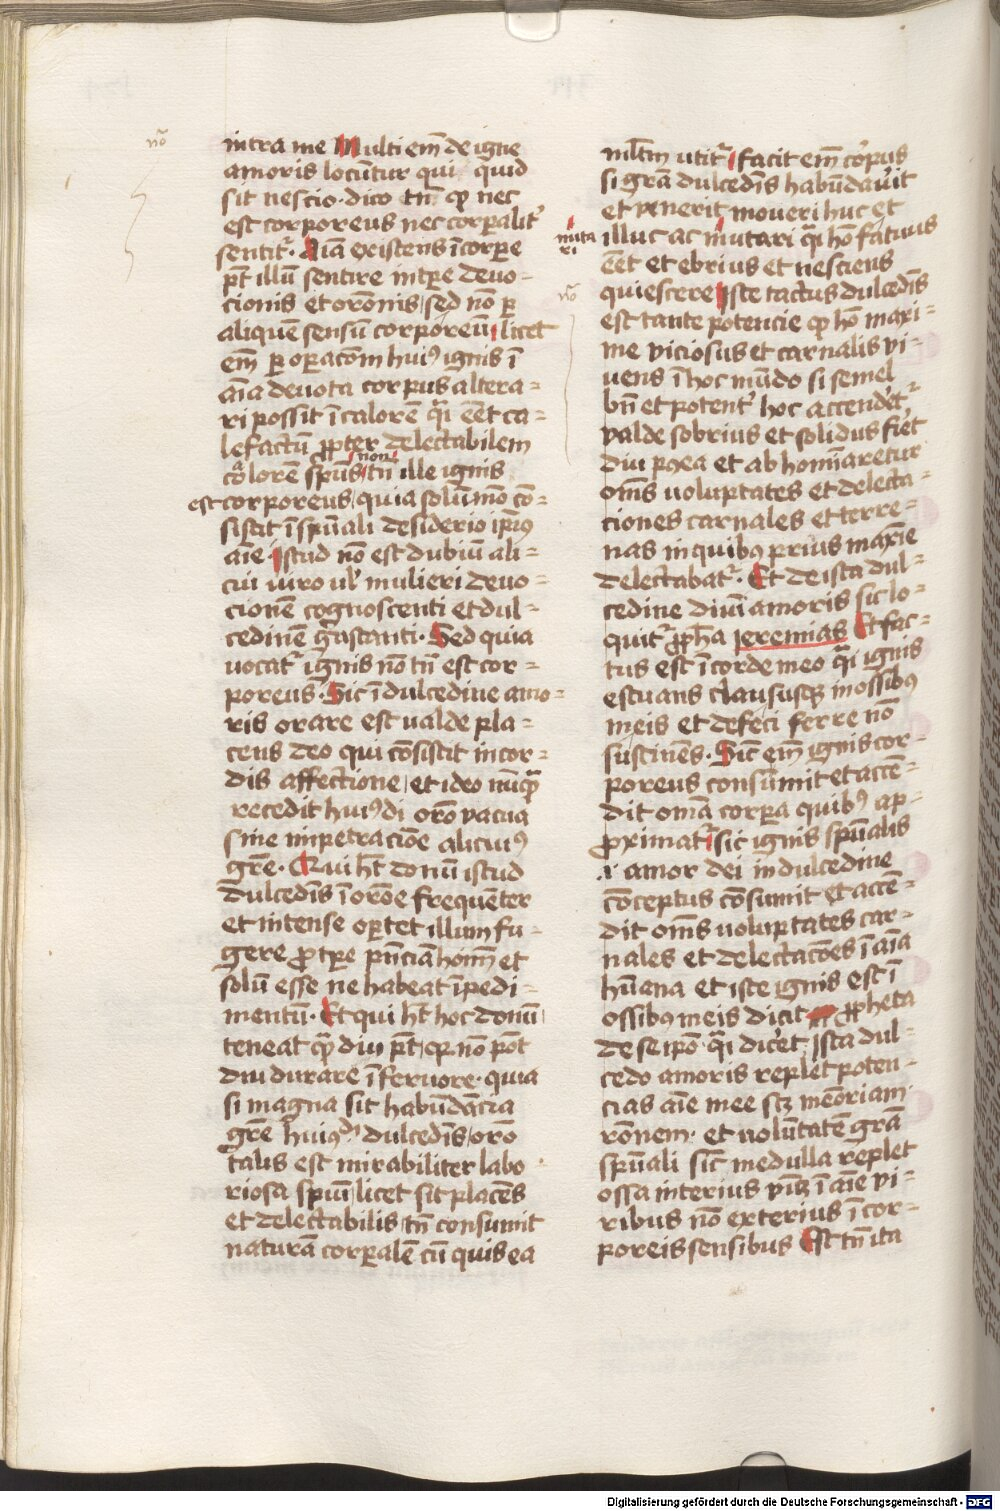 nō
intra me Multi em̄ de igne
amoris locūtur qui quid
sit nescio · dico tn̄ qp nec
est corporeus nec corꝑalit᷑
sentit᷑ · Aīa existens ī corpe
pt̄ illū sentire mtꝑe devo-
cionis et orōnis / sed nō ꝑ
aliquē sensū corporeū / licet
em̄ ꝑ oꝑacōm huiꝯ ignis ī
aīa devota corpus altera=
ri possit ī calorē qͣi eēt ca=
lefactū ꝓpter delectabilem
cͣlorē spūs / tn̄ non ille ignis
est corporeus / quia solūmō cō=
sistit ī spūali desiderio ipīꝰ
aīe Istud nō est dubiū ali=
cui viro ul᷑ mulieri devo=
cionē cognoscenti et dul=
cedinē gͣstanti · Sed quia
vocat᷑ ignis nō tn̄ est cor=
poreus · Sic ī dulcedine amo=
ris orare est valde pla=
cens deo qui cōsistit in cor=
dis affectione / et ideo nūqͣ
recedit huiꝰdi orō vacua
sine impetracione alicuiꝰ
grē · Qui ht̄ donū istud
dulcedīs ī orōe frequēter
et intense oꝑtet illum fu-
gere ꝓ tꝑe p̄nciam homīm et
solū esse ne habeat īpedi-
mentū · Et qui ht̄ hoc donū
teneat qͣ diu pt̄ / qꝛ nō pōt
diu durare ī fervore · quia
si magna sit habūdācia
grē huiꝰdi dulcedīs / orō
talis est mirabiliter labo
riosa spūi / licet sit placēs
et delectabilis / tn̄ consumit
naturā corꝑalē cū quis ea
ml̄tm utit᷑ / facit em̄ corpus
si grā dulcedīs habūdav᷑it
et venerit moveri huc et
muta
ri
illuc ac mutari qͣi hō fatuus
eēt et ebrius et nesciens
quiescere Iste tactus dulcedīs
nō
est tante potencie qp hō maxi=
me viciosus et carnalis vi=
vens ī hoc mūdo si semel
bn̄ et potent᷑ hoc accendet᷑
valde sobrius et solidus fiet
diu postea et abhomīaretur
om̄s voluptates et delecta-
ciones carnales et terre=
nas in quibꝰ prius maxīe
delectabat᷑ · Et de ista dul=
cedine divī amoris sic lo-
quit᷑ ꝓph̄a Jeremias Et fac=
tus est ī corde meo qͣi ignis
estuans claususqꝫ in ossibꝰ
meis et defeci ferre nō
sustinēs · Sic em̄ ignis cor=
poreus consumit et accē=
dit om̄a corꝑa quibꝰ ap=
ꝓximat᷑ / sic ignis spūalis
·i· amor dei in dulcedine
cōceptus cōsumit et accē=
dit om̄s voluptates car=
nales et delectacōes ī aīa
hūana et iste ignis est ī
ossibꝰ meis dicit ꝓpheta
de se ip̄o · qͣi dicet᷑ Ista dul=
cedo amoris replet poten-
cias aīe mee scꝫ memoriam
rōnem · et volūtatē grā
spūali sic̄ medulla replet
ossa interius vidꝫ ī aīe vi=
ribus nō exterius ī cor=
poreis sensibus Est tn̄ ita
Digitalisierung gefördert durch die Deutsche Forschungsgemeinschaft - DFG